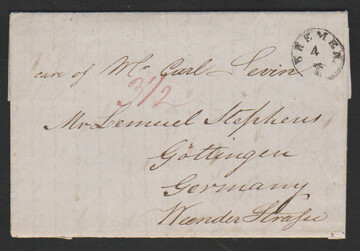 BREMEN
4
care of Mr Carl Levin
3 1/2
Mr Lemuel Stephens
Göttingen
Germany
Weender Straße